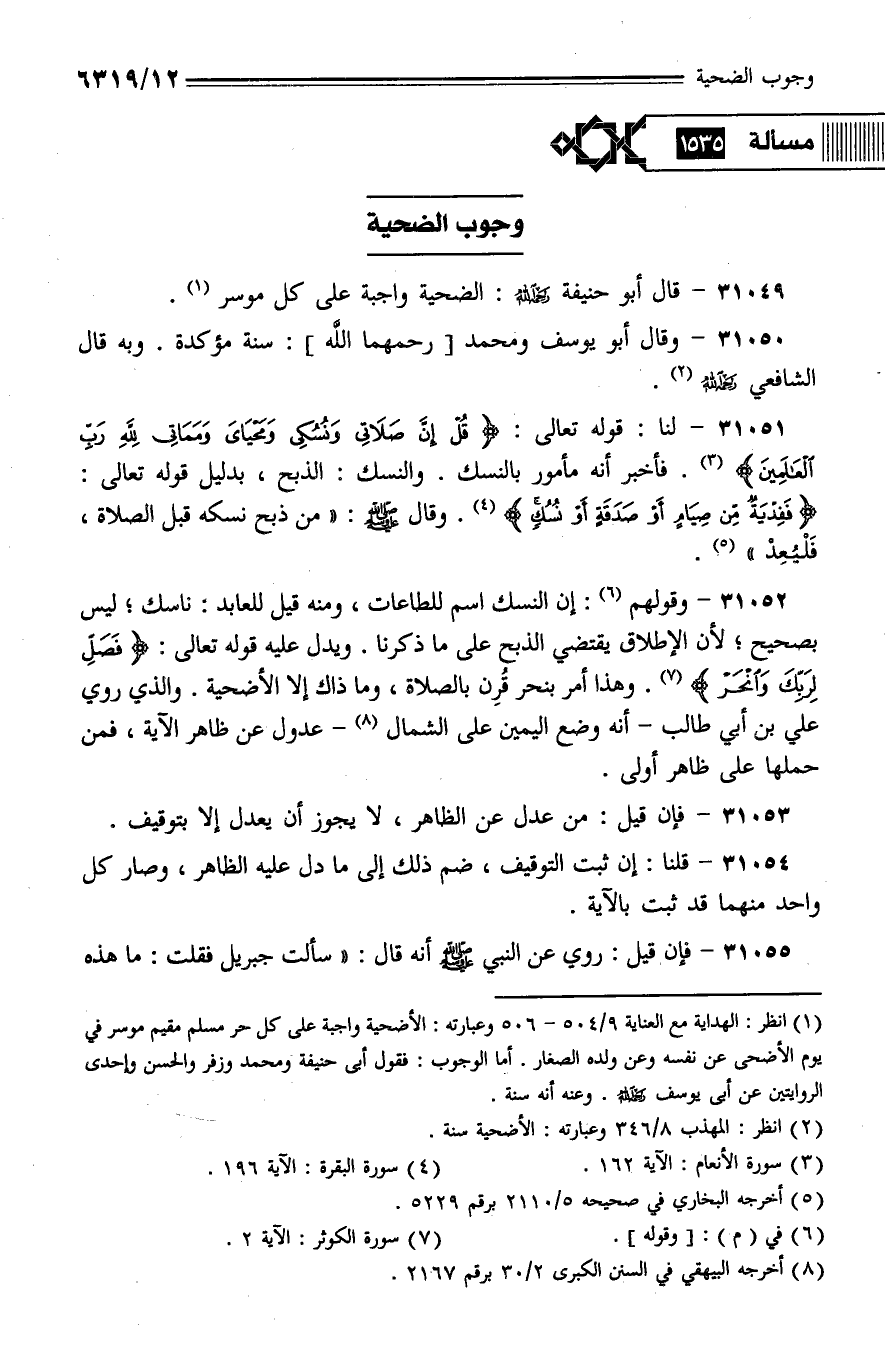 وجوب الضحية ٦٣١٩/١٢
مسألة ١٥٣٥
وجوب الضحية
٣١٠٤٩ - قال أبو حنيفة رَحِمَهُ اللَّهُ : الضحية واجبة على كل موسر (١) .
٣١٠٥٠ - وقال أبو يوسف ومحمد [ رحمهما اللَّه ] : سنة مؤكدة . وبه قال
الشافعي رَحِمَهُ اللَّهُ (٢) .
٣١٠٥١ - لنا : قوله تعالى : ﴿ قُلْ إِنَّ صَلَاتِي وَنُسُكِي وَمَحْيَايَ وَمَمَاتِي لِلَّهِ رَبِّ
الْعَالَمِينَ ﴾ (٣) . فأخبر أنه مأمور بالنسك . والنسك : الذبح ، بدليل قوله تعالى :
﴿ فَفِدْيَةٌ مِّن صِيَامٍ أَوْ صَدَقَةٍ أَوْ نُسُكٍ ﴾ (٤) . وقال ﷺ : « من ذبح نسكه قبل الصلاة ،
فَلْيُعِدْ » (٥) .
٣١٠٥٢ - وقولهم (٦) : إن النسك اسم للطاعات ، ومنه قيل للعابد : ناسك ؛ ليس
بصحيح ؛ لأن الإطلاق يقتضي الذبح على ما ذكرنا . ويدل عليه قوله تعالى : ﴿ فَصَلِّ
لِرَبِّكَ وَانْحَرْ ﴾ (٧) . وهذا أمر بنحر قُرِن بالصلاة ، وما ذاك إلا الأضحية . والذي روي
علي بن أبي طالب - أنه وضع اليمين على الشمال (٨) - عدول عن ظاهر الآية ، فمن
حملها على ظاهر أولى .
٣١٠٥٣ - فإن قيل : من عدل عن الظاهر ، لا يجوز أن يعدل إلا بتوقيف .
٣١٠٥٤ - قلنا : إن ثبت التوقيف ، ضم ذلك إلى ما دل عليه الظاهر ، وصار كل
واحد منهما قد ثبت بالآية .
٣١٠٥٥ - فإن قيل : روي عن النبي ﷺ أنه قال : « سألت جبريل فقلت : ما هذه
(١) انظر : الهداية مع العناية ٥٠٤/٩ - ٥٠٦ وعبارته : الأضحية واجبة على كل حر مسلم مقيم موسر في
يوم الأضحى عن نفسه وعن ولده الصغار . أما الوجوب : فقول أبى حنيفة ومحمد وزفر والحسن وإحدى
الروايتين عن أبى يوسف رَحِمَهُ اللَّهُ . وعنه أنه سنة .
(٢) انظر : المهذب ٣٤٦/٨ وعبارته : الأضحية سنة .
(٣) سورة الأنعام : الآية ١٦٢ . (٤) سورة البقرة : الآية ١٩٦ .
(٥) أخرجه البخاري في صحيحه ٢١١٠/٥ برقم ٥٢٢٩ .
(٦) في ( م ) : [ وقوله ] . (٧) سورة الكوثر : الآية ٢ .
(٨) أخرجه البيهقي في السنن الكبرى ٣٠/٢ برقم ٢١٦٧ .